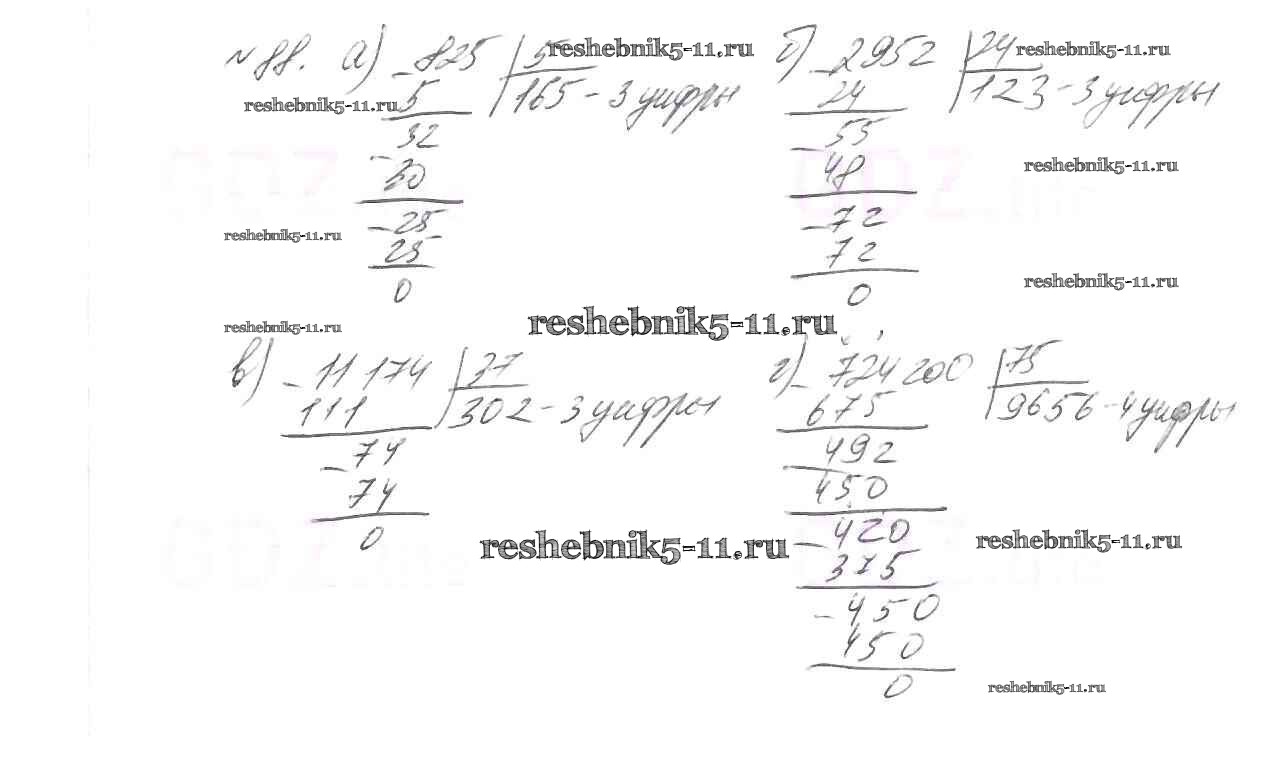 № 88. а) - 825 | 5 reshebnik5-11.ru
reshebnik5-11.ru 5 | 165 - 3 цифры
- 32
30
- 25
reshebnik5-11.ru 25
0
reshebnik5-11.ru
б) - 2952 | 24 reshebnik5-11.ru
24 | 123 - 3 цифры
- 55
48 reshebnik5-11.ru
- 72
72
0 reshebnik5-11.ru
reshebnik5-11.ru
в) - 11 174 | 37
111 | 302 - 3 цифры
- 74
74
0
reshebnik5-11.ru
г) - 724 200 | 75
675 | 9656 - 4 цифры
- 492
450
- 420 reshebnik5-11.ru
375
- 450
450
0 reshebnik5-11.ru